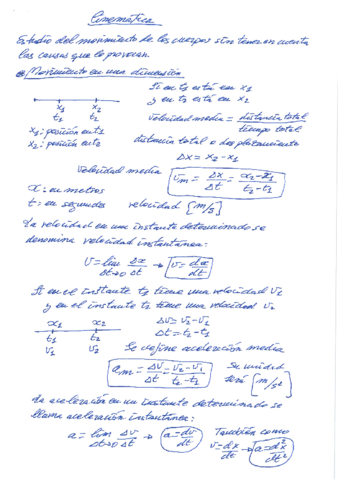 Cinemática
Estudio del movimiento de los cuerpos sin tener en cuenta
las causas que lo provocan.
Movimiento en una dimensión
Si en t₁ está en x₁
y en t₂ está en x₂
x₁ x₂
t₁ t₂
velocidad media = distancia total / tiempo total
x₁: posición en t₁
x₂: posición en t₂
distancia total o desplazamiento
Δx = x₂ - x₁
velocidad media
v_m = Δx/Δt = (x₂-x₁)/(t₂-t₁)
x: en metros
t = en segundos velocidad [m/s]
La velocidad en un instante determinado se
denomina velocidad instantánea:
v = lim Δt→0 Δx/Δt → v = dx/dt
Si en el instante t₁ tiene una velocidad v₁
y en el instante t₂ tiene una velocidad v₂
x₁ x₂
t₁ t₂
v₁ v₂
Δv = v₂-v₁
Δt = t₂-t₁
Se define aceleración media
a_m = Δv/Δt = (v₂-v₁)/(t₂-t₁)
Su unidad
será [m/s²]
La aceleración en un instante determinado se
llama aceleración instantánea:
a = lim Δt→0 Δv/Δt → a = dv/dt
También como
v = dx/dt → a = d²x/dt²